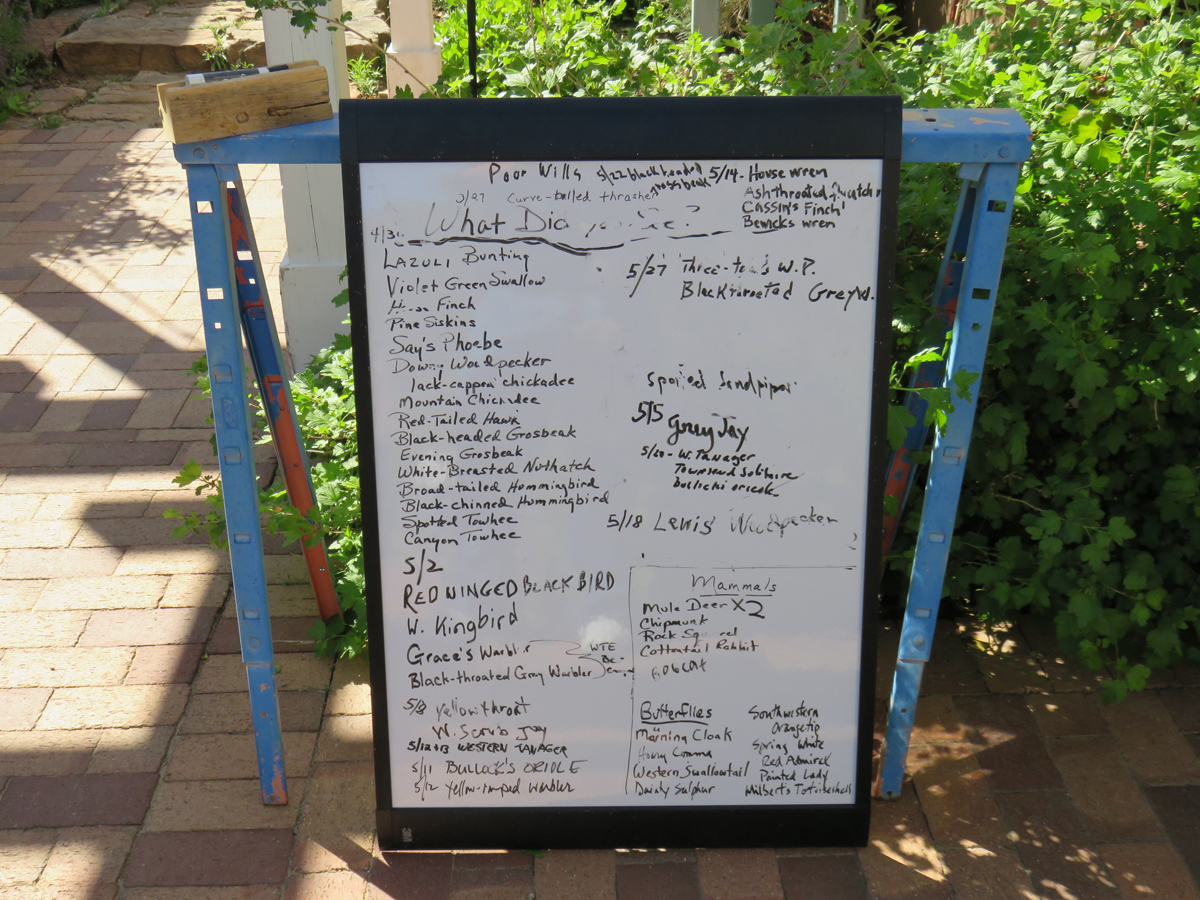 Poor Wills 5/22 blackheaded grossbeak
5/14 - House wren
Ashthroated
Cassin's Finch
Bewicks wren
Curve-billed thrasher
What Did
LAZULI Bunting
Violet Green Swallow
Finch
Pine Siskins
Say's Phoebe
Downy Woodpecker
lack-cappen chickadee
Mountain Chickadee
Red-Tailed Hawk
Black-headed Grosbeak
Evening Grosbeak
White-Breasted Nuthatch
Broad-tailed Hummingbird
Black-chinned Hummingbird
Spotted Towhee
Canyon Towhee
5/2
RED WINGED BLACK BIRD
W. Kingbird
Grace's Warbler
WTE
Black-throated Gray Warbler
5/8 Yellowthroat
W. Scrub Jay
5/12+13 WESTERN TANAGER
5/11 BULLOCK'S ORIOLE
5/12 Yellow-rumped warbler
5/27 Three-toe's W.P.
Blackthroated Grey W.
Spotted Sandpiper
5/5 Gray Jay
5/20 - W. Tanager
Townsend Solitaire
bullocki oriole
5/18 Lewis Woodpecker
Mammals
Mule Deer X2
Chipmunk
Rock Sq rel
Cottontail Rabbit
BOBCAT
Butterflies
Morning Cloak
Hoary Comma
Western Swallowtail
Dainty Sulphur
Southwestern
Orangetip
Spring White
Red Admiral
Painted Lady
Milbert's Tortoiseshell